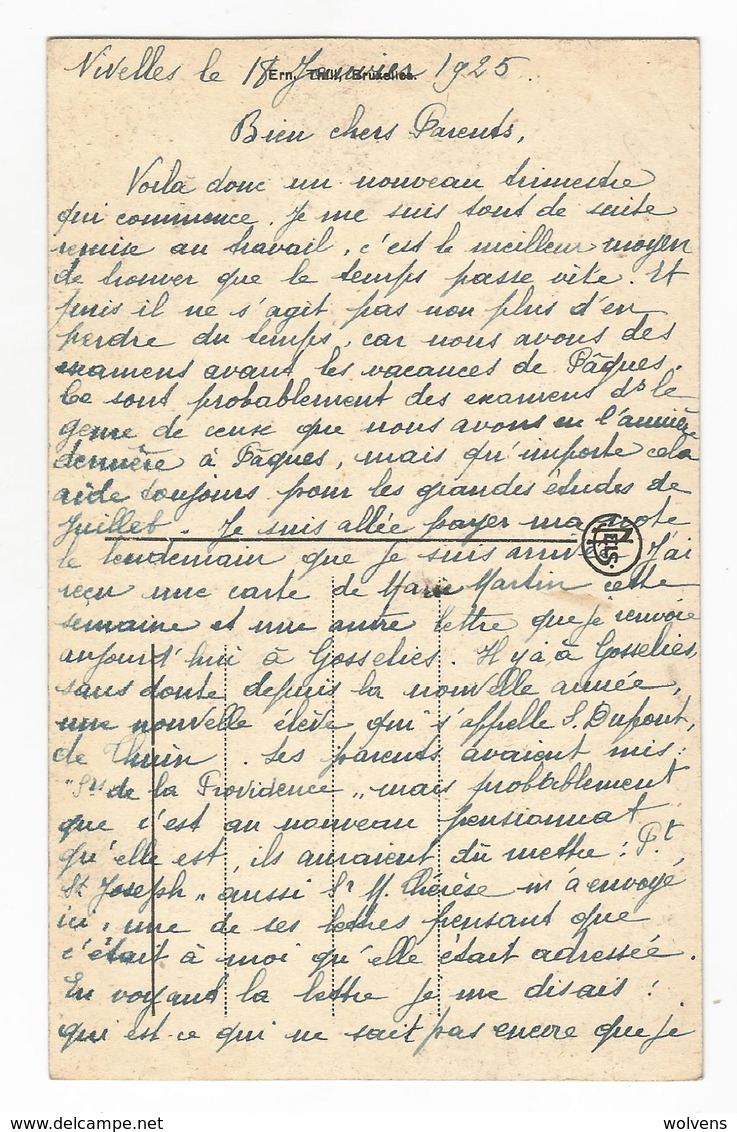 Nivelles le 18 Janvier 1925.
Ern. Thill, Bruxelles.
Bien chers Parents,
Voilà donc un nouveau trimestre
qui commence. Je me suis tout de suite
remise au travail, c'est le meilleur moyen
de trouver que le temps passe vite. Et
puis il ne s'agit pas non plus d'en
perdre du temps, car nous avons des
examens avant les vacances de Pâques.
Ce sont probablement des examens ds le
genre de ceux que nous avons eu l'année
dernière à Pâques, mais qu'importe cela
aide toujours pour les grandes études de
Juillet. Je suis allée payer ma note
le lendemain que je suis arrivée. J'ai
NELS
reçu une carte de Marie Martin cette
semaine et une autre lettre que je renvoie
aujourd'hui à Gosselies. Il y a, à Gosselies,
sans doute depuis la nouvelle année,
une nouvelle élève qui s'appelle S. Dupont,
de Thuin. Ses parents avaient mis :
"Srs de la Providence" mais probablement
que c'est au nouveau pensionnat
qu'elle est, ils auraient dû mettre : Pt
St Joseph" aussi Sr M. Thérèse m'a envoyé
ici, une de ses lettres pensant que
c'était à moi qu'elle était adressée.
En voyant la lettre je me disais :
qui est-ce qui ne sait pas encore que je
wolvens